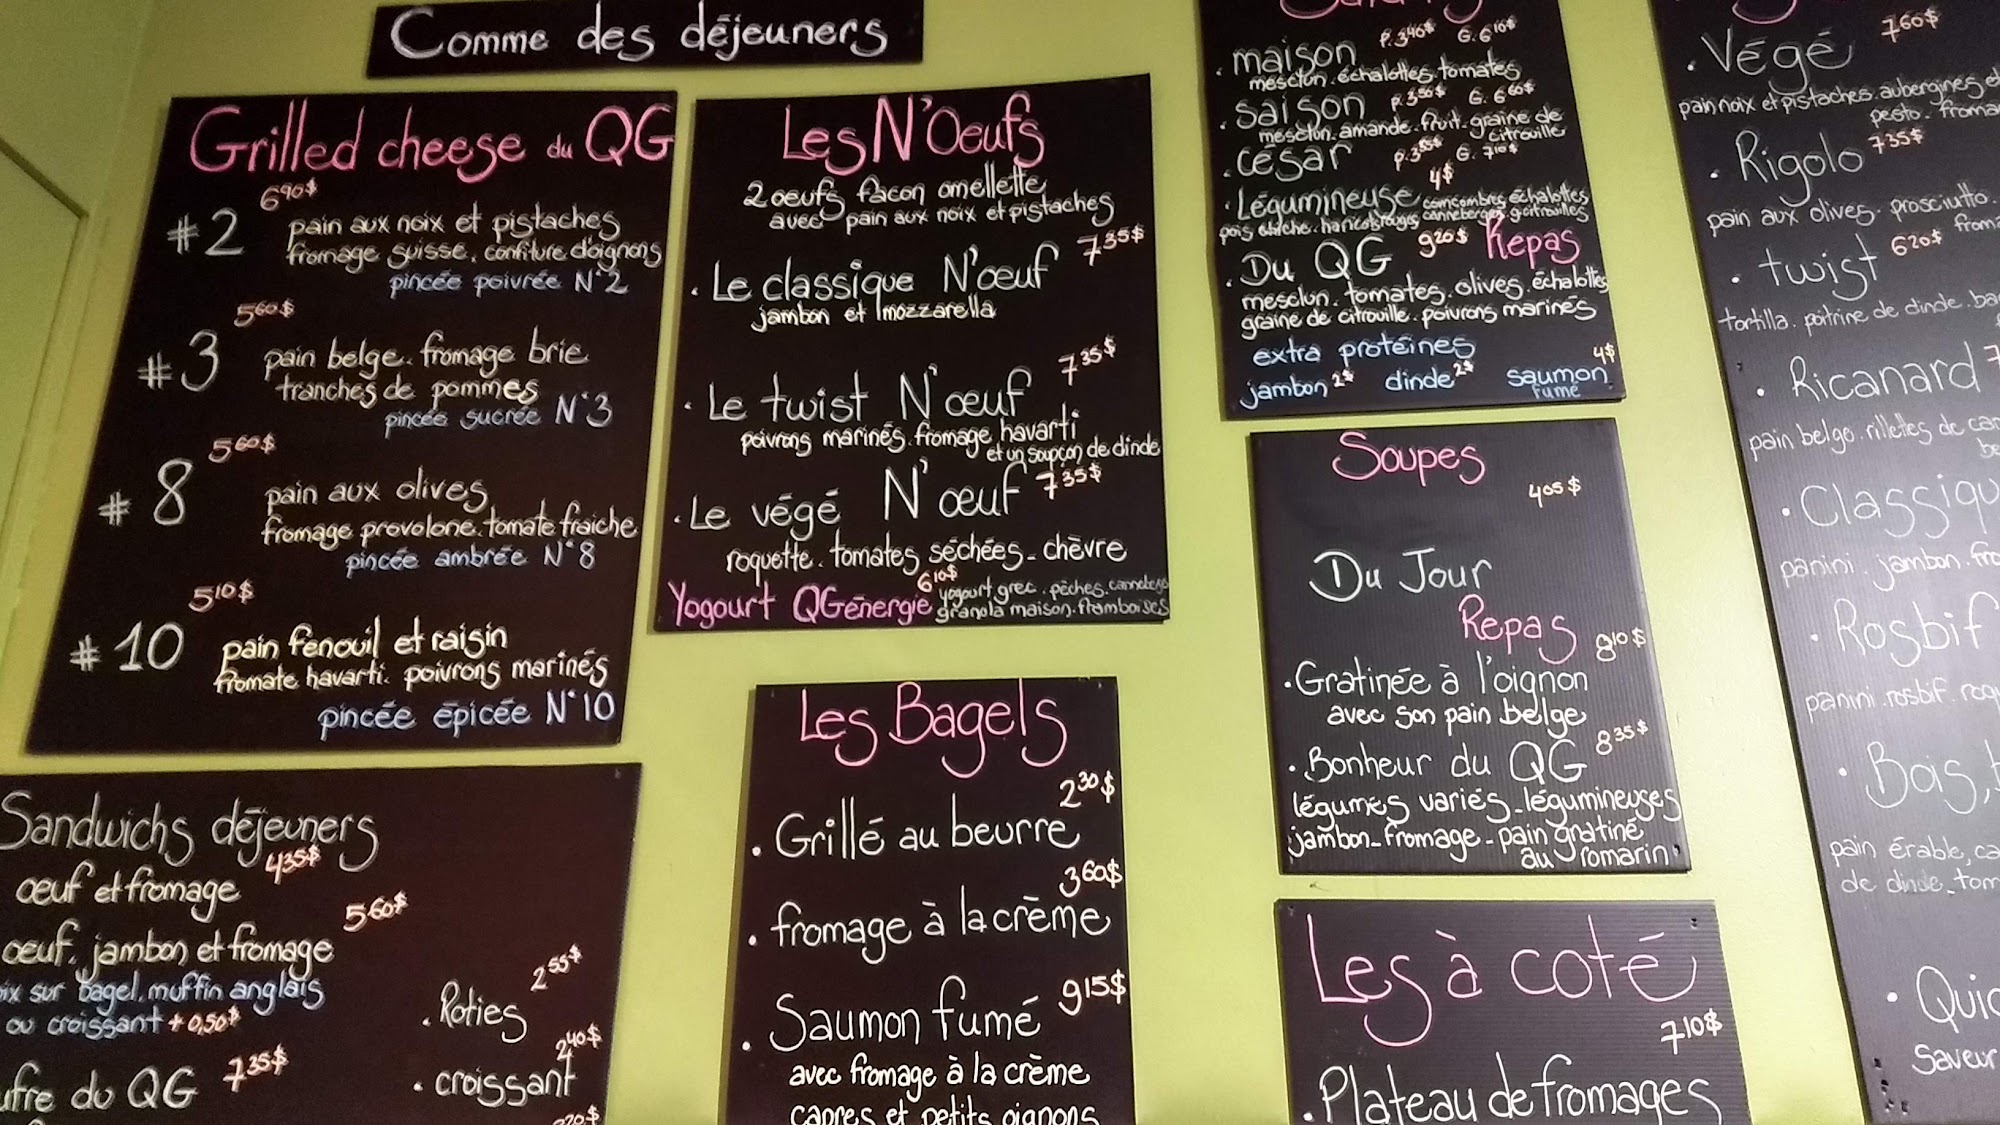 Comme des déjeuners
Grilled cheese du QG
6 90 $
#2 pain aux noix et pistaches
fromage suisse, confiture d'oignons
pincée poivrée N°2
5 60 $
#3 pain belge. fromage brie
tranches de pommes
pincée sucrée N°3
5 60 $
#8 pain aux olives
fromage provolone. tomate fraiche
pincée ambrée N°8
5 10 $
#10 pain fenouil et raisin
fromate havarti. poivrons marinés
pincée épicée N°10
Sandwichs déjeuners
4 35 $
œuf et fromage
5 60 $
œuf, jambon et fromage
sur bagel, muffin anglais
ou croissant + 0,50 $
du QG 7 35 $
2 55 $
. Roties
2 40 $
. croissant
Les N'Oeufs
2 oeufs façon omellette
avec pain aux noix et pistaches
7 35 $
. Le classique N'œuf
jambon et mozzarella
7 35 $
. Le twist N'œuf
poivrons marinés. fromage havarti
et un soupçon de dinde
. Le végé N'œuf 7 35 $
roquette. tomates séchées - chèvre
Yogourt QGénergie 6 10 $ yogourt grec. pêches.
granola maison. framboises
Les Bagels
2 30 $
. Grillé au beurre
3 60 $
. fromage à la crème
9 15 $
. Saumon fumé
avec fromage à la crème
capres et petits oignons
. maison P. 3 40 $ G. 6 10 $
mesclun. échalottes. tomates
. saison P. 3 50 $ G. 6 60 $
mesclun. amande. fruit. graine de
citrouille
. césar P. 3 85 $ G. 7 10 $
4 $
. Légumineuse concombres échalottes
pois chiche. haricots rouges canneberges citrouilles
. Du QG 9 20 $ Repas
mesclun. tomates. olives. échalottes
graine de citrouille. poivrons marinés
extra protéines
jambon 2 $ dinde 2 $ saumon 4 $
fumé
Soupes
4 05 $
Du Jour
Repas
8 10 $
. Gratinée à l'oignon
avec son pain belge
8 35 $
. Bonheur du QG
légumes variés - légumineuses
jambon - fromage - pain gratiné
au romarin
Les à coté
7 10 $
. Plateau de fromages
. Végé 7 60 $
pain noix et pistaches. aubergines et
pesto.
. Rigolo 7 35 $
pain aux olives. prosciutto.
. twist 6 20 $
tortilla. poitrine de dinde.
. Ricanard
pain belge. rillettes de
.
panini. jambon.
. Rosbif
panini. rosbif.
. Bois,
pain érable,
de dinde.
.